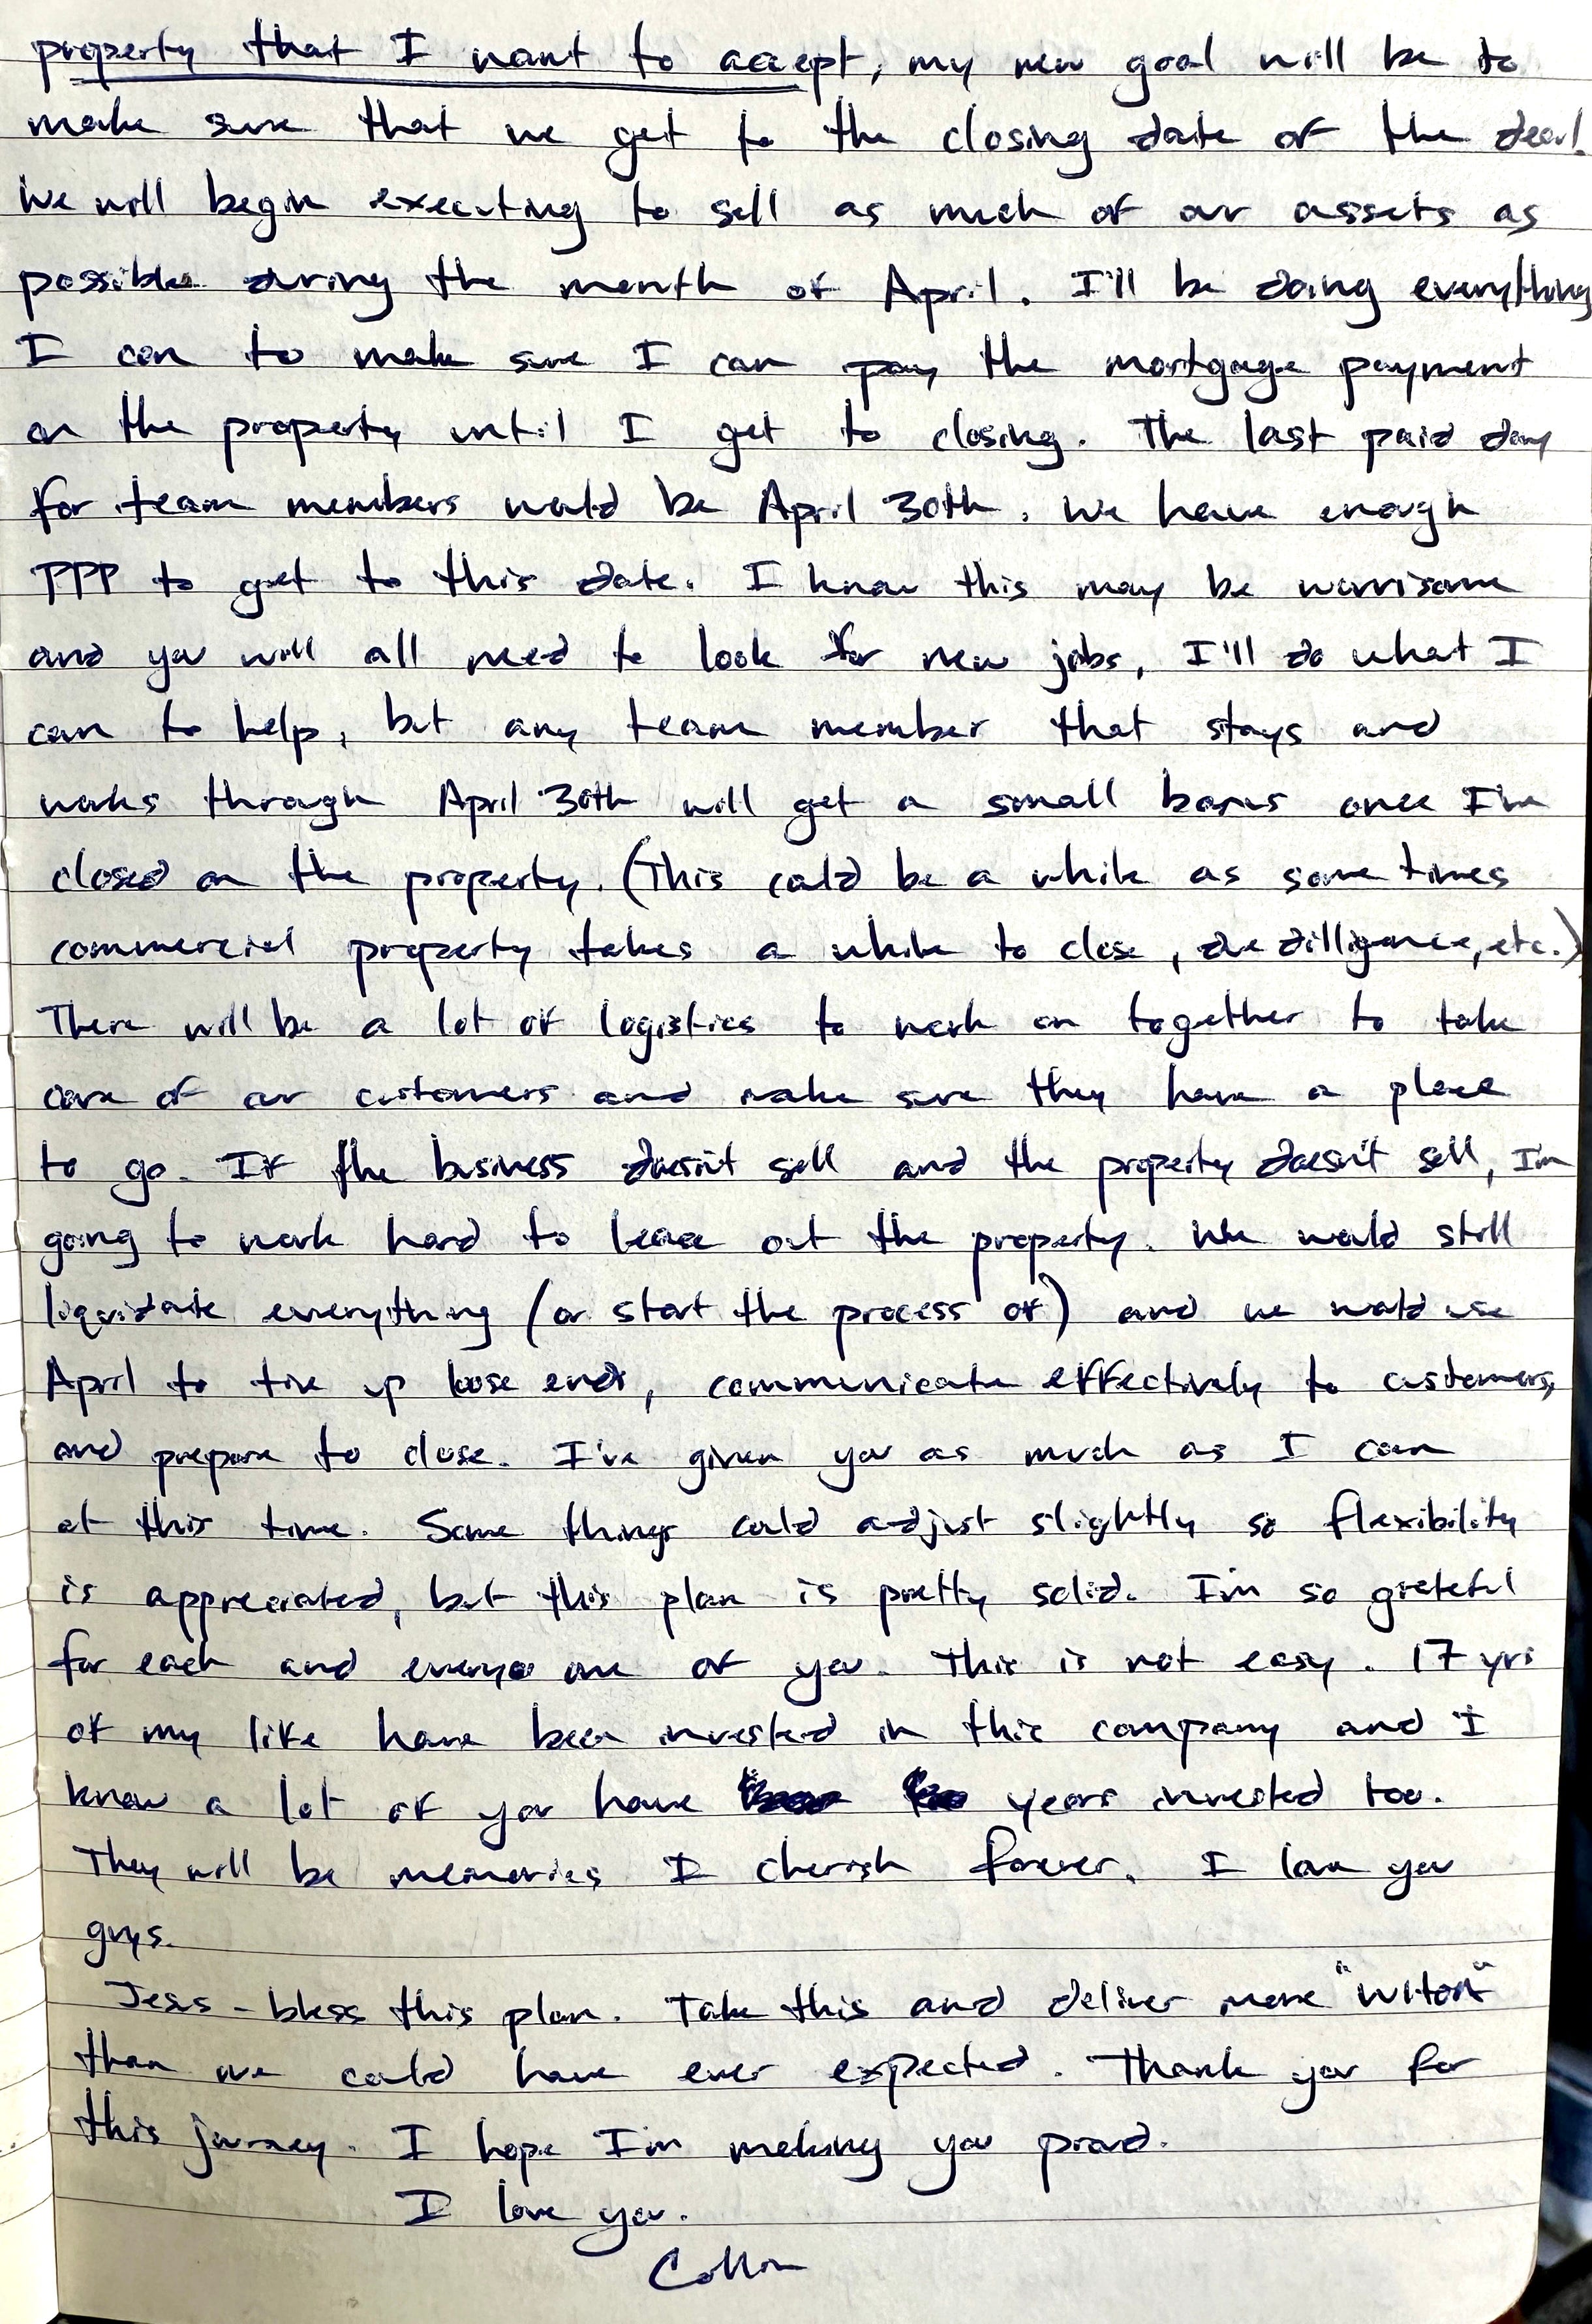 property that I want to accept, my new goal will be to
make sure that we get to the closing date of the deal.
We will begin executing to sell as much of our assets as
possible during the month of April. I'll be doing everything
I can to make sure I can pay the mortgage payment
on the property until I get to closing. The last paid day
for team members would be April 30th. We have enough
PPP to get to this date. I know this may be worrisome
and you will all need to look for new jobs, I'll do what I
can to help, but any team member that stays and
works through April 30th will get a small bonus once I'm
closed on the property. (This could be a while as some times
commercial property takes a while to close, due dilligence, etc.)
There will be a lot of logistics to work on together to take
care of our customers and make sure they have a place
to go. If the business doesn't sell and the property doesn't sell, I'm
going to work hard to lease out the property. We would still
liquidate everything (or start the process of) and we would use
April to tie up loose ends, communicate effectively to customers,
and prepare to close. I've given you as much as I can
at this time. Some things could adjust slightly so flexibility
is appreciated, but this plan is pretty solid. I'm so grateful
for each and every one of you. This is not easy. 17 yrs
of my life have been invested in this company and I
know a lot of you have years invested too.
They will be memories I cherish forever. I love you
guys.
Jesus - bless this plan. Take this and deliver more
than we could have ever expected. Thank you for
this journey. I hope I'm making you proud.
I love you.
Collin